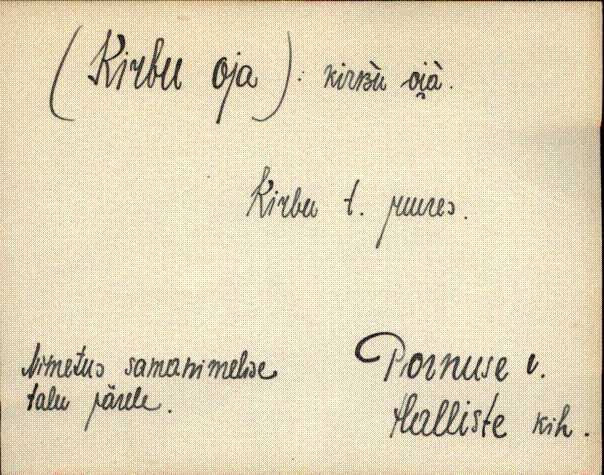 (Kirbu oja): kirʙù oi̯à.
Kirbu t. juures.
Nimetus samanimelise
talu järele.
Pornuse v.
Halliste kih.